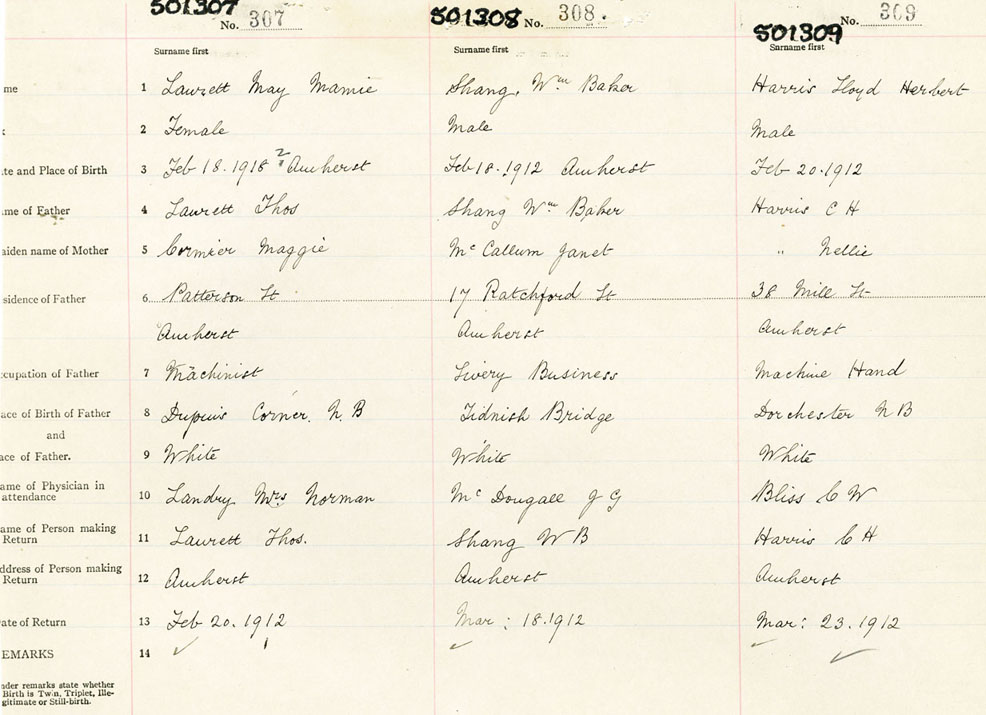 501307 No. 307 501308 No. 308. 501309 No. 309
Surname first Surname first Surname first
me 1 Laurett May Mamie Shang, Wm Baker Harris Lloyd Herbert
2 Female Male Male
te and Place of Birth 3 Feb 18. 1918 2 Amherst Feb 18. 1912 Amherst Feb 20. 1912
me of Father 4 Laurett Thos Shang Wm Baker Harris C H
aiden name of Mother 5 Cormier Maggie Mc Callum Janet " Nellie
sidence of Father 6 Patterson St 17 Ratchford St 38 Mill St
Amherst Amherst Amherst
cupation of Father 7 Machinist Livery Business Machine Hand
ace of Birth of Father 8 Dupuis Corner. N. B Tidnish Bridge Dorchester N B
and
ace of Father. 9 White White White
ame of Physician in
attendance 10 Landry Mrs Norman Mc Dougall J G Bliss C W
ame of Person making
Return 11 Laurett Thos. Shang W B Harris C H
ddress of Person making
Return 12 Amherst Amherst Amherst
ate of Return 13 Feb 20. 1912 Mar: 18. 1912 Mar: 23. 1912
EMARKS 14
nder remarks state whether
Birth is Twin, Triplet, Ille-
gitimate or Still-birth.